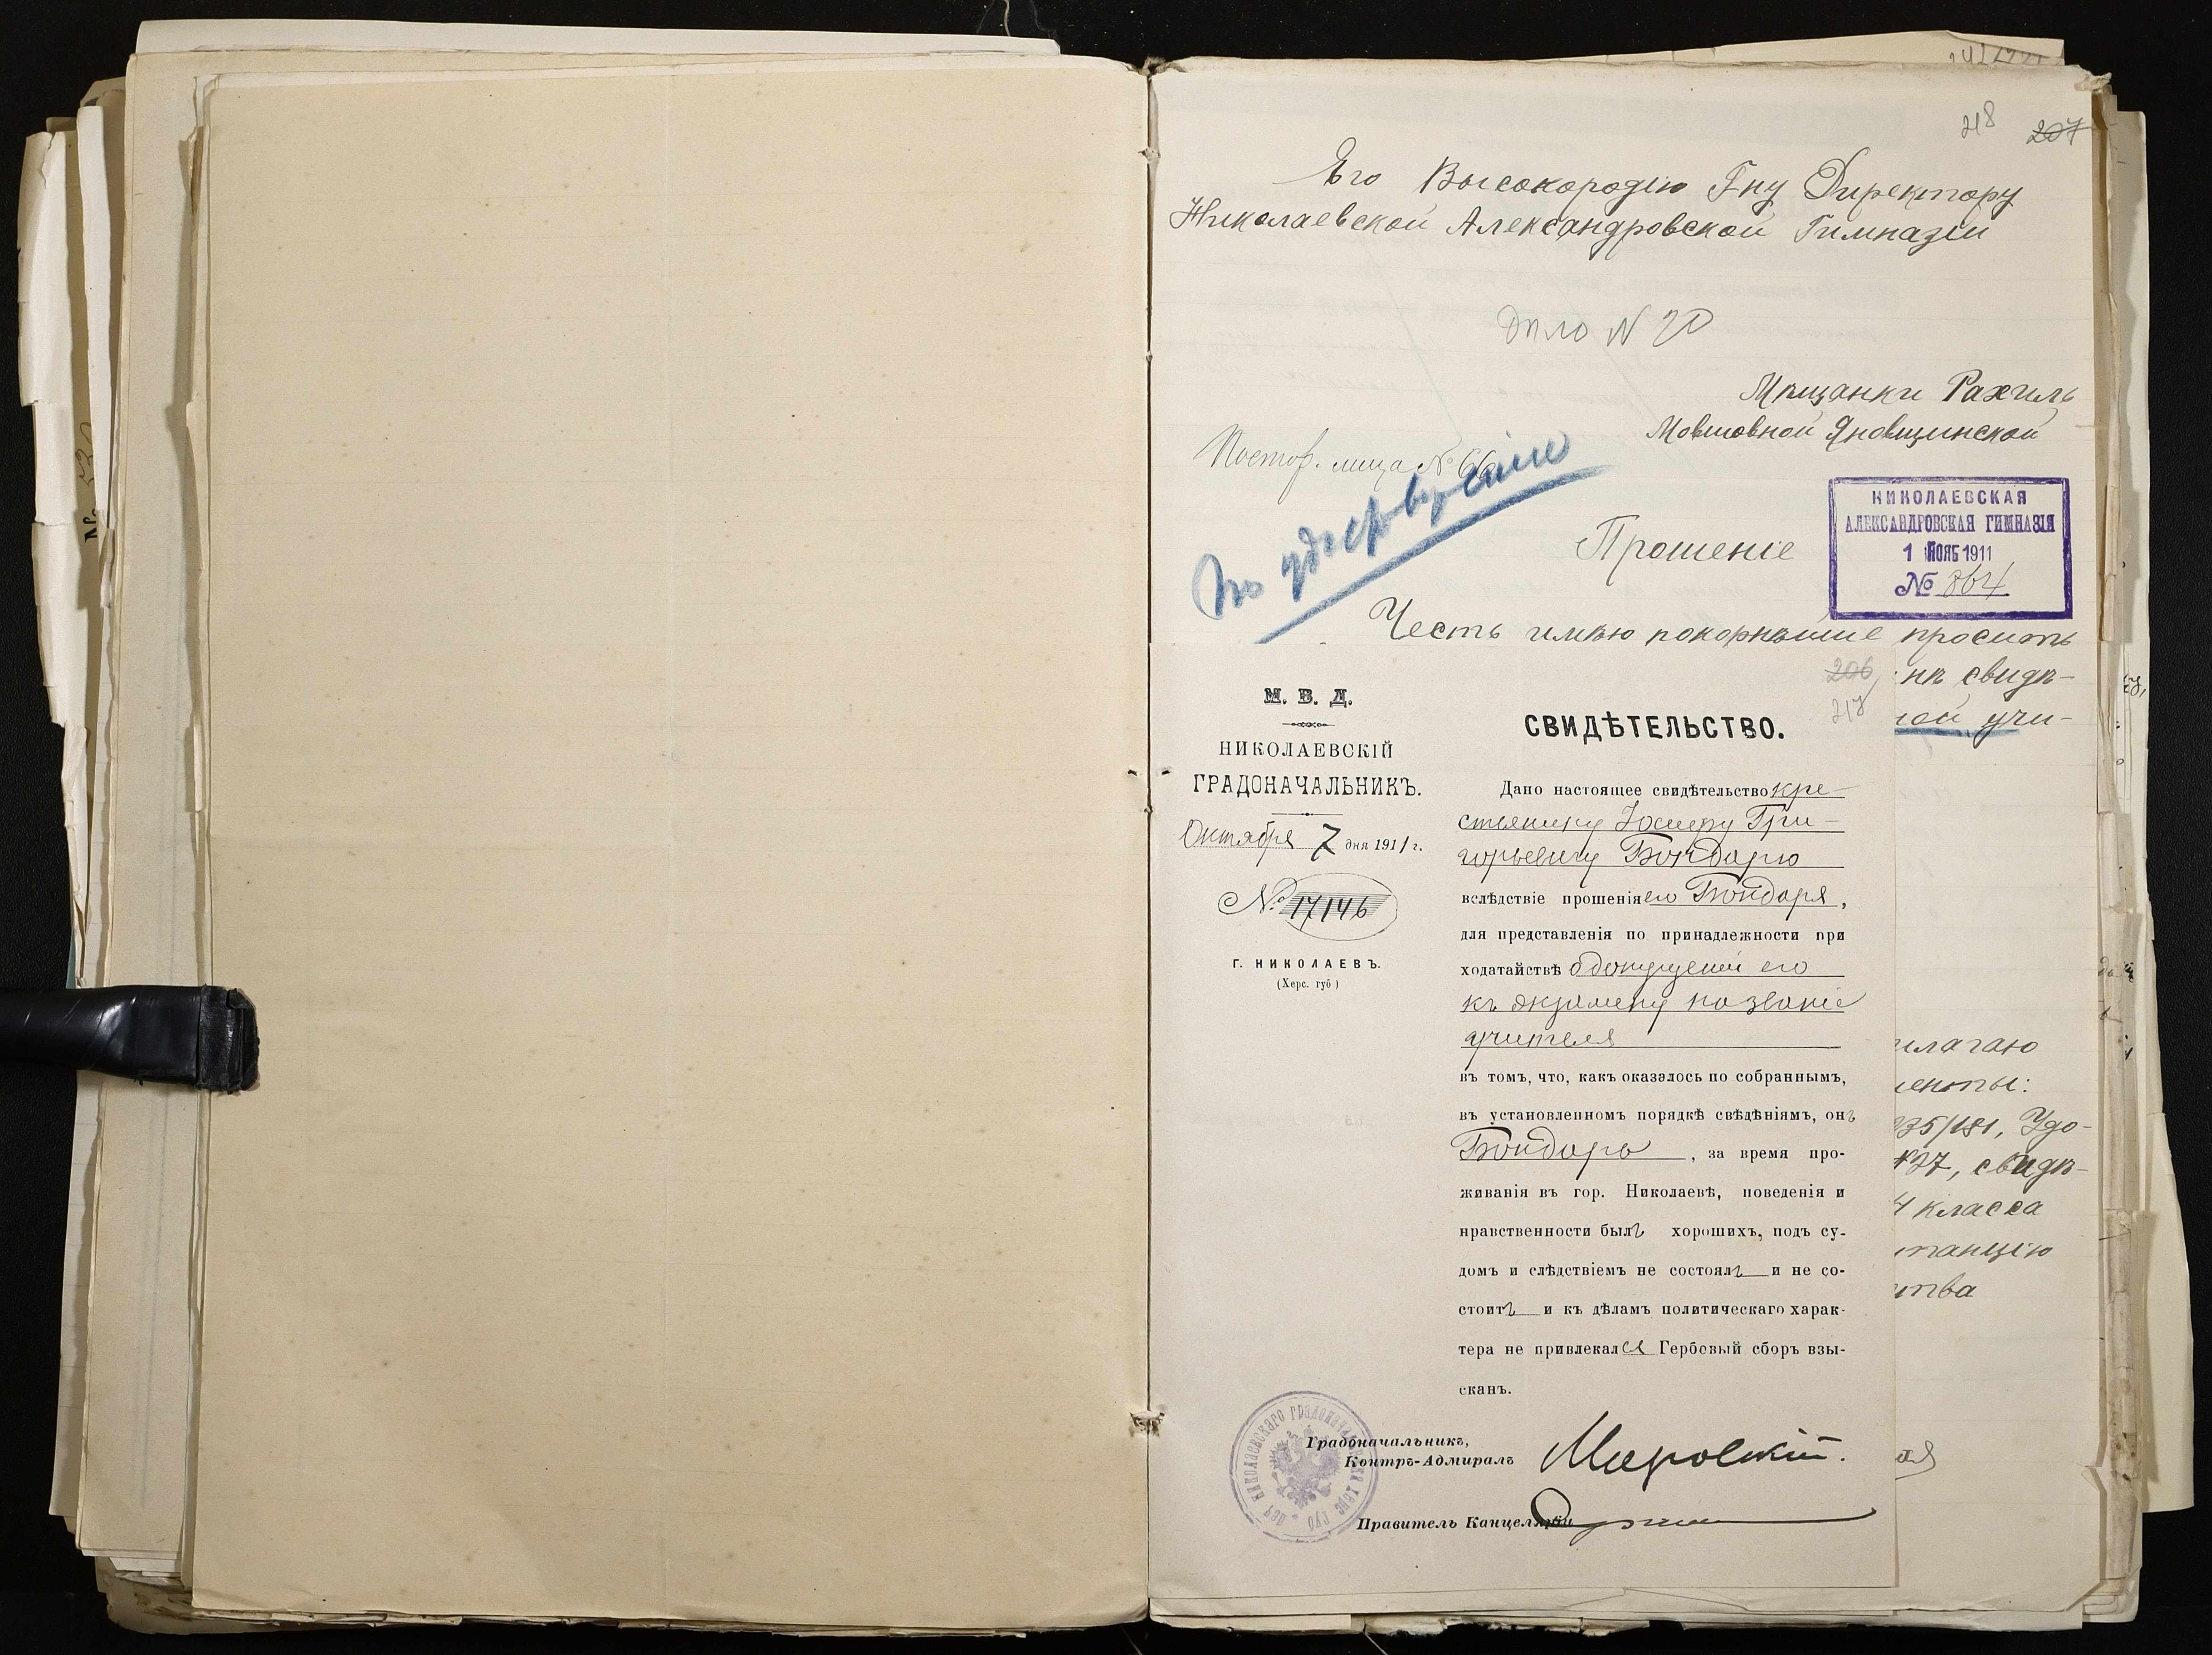 218 207
Его Высокородію Гну Директору
Николаевской Александровской Гимназіи
дѣло N 20
Мѣщанки Рахиль
Мовшовной Яновщинской
Постор. лица №
По удостовѣренію
Прошеніе
НИКОЛАЕВСКАЯ
АЛЕКСАНДРОВСКАЯ ГИМНАЗІЯ
1 НОЯБ 1911
№ 864
Честь имѣю покорнѣйше просить
нѣ свидѣ-
ной учи-
206
217
М. В. Д.
НИКОЛАЕВСКІЙ
ГРАДОНАЧАЛЬНИКЪ.
Октября 7 дня 1911 г.
№ 17146
Г. НИКОЛАЕВЪ.
(Херс. губ)
СВИДѢТЕЛЬСТВО.
Дано настоящее свидѣтельство кре-
стьянину Іосифу Гри-
горьевичу Бондарю
вслѣдствіе прошенія его Бондаря,
для представленія по принадлежности при
ходатайствѣ о допущеніи его
къ экзамену на званіе
учителя
въ томъ, что, какъ оказалось по собраннымъ,
въ установленномъ порядкѣ свѣдѣніямъ, онъ
Бондарь, за время про-
живанія въ гор. Николаевѣ, поведенія и
нравственности былъ хорошихъ, подъ су-
домъ и слѣдствіемъ не состоялъ и не со-
стоитъ и къ дѣламъ политическаго харак-
тера не привлекался Гербовый сборъ взы-
сканъ.
Градоначальникъ,
Контръ-Адмиралъ
Правитель Канцеляріи
илагаю
енты:
35/181, Удо-
свидѣ-
4 класса
танцію
ства